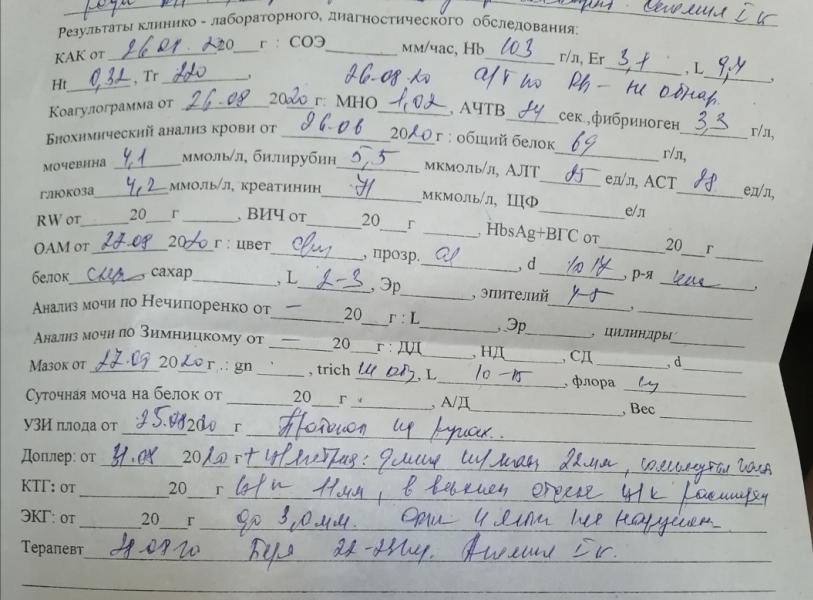 Анемия I ст
Результаты клинико - лабораторного, диагностического обследования:
КАК от 26.08.2020 г : СОЭ мм/час, Hb 103 г/л, Er 3,1, L 9,4,
Ht 0,32, Tr 220, 26.08.20 а/т по Rh - не обнар.
Коагулограмма от 26.08 2020 г: МНО 1,02, АЧТВ 24 сек.,фибриноген 3,3 г/л,
Биохимический анализ крови от 26.08 2020 г : общий белок 69 г/л,
мочевина 4,1 ммоль/л, билирубин 5,5 мкмоль/л, АЛТ 25 ед/л, АСТ 28 ед/л,
глюкоза 4,2 ммоль/л, креатинин 71 мкмоль/л, ЩФ е/л
RW от 20 г , ВИЧ от 20 г , HbsAg+ВГС от 20 г
ОАМ от 27.08 2020 г : цвет , прозр. , d 1017, р-я кис,
белок , сахар , L 2-3, Эр , эпителий 4-5,
Анализ мочи по Нечипоренко от — 20 г : L , Эр , цилиндры
Анализ мочи по Зимницкому от — 20 г : ДД , НД , СД , d
Мазок от 27.08 2020 г .: gn , trich не обн, L 10-15, флора
Суточная моча на белок от 20 г , А/Д , Вес
УЗИ плода от 25.08 2020 г Протокол на руках.
Доплер: от 31.08 2020 г + : длина 22 мм, сомкнутая часть
КТГ: от 20 г ц/к 11мм, в верхнем отделе ц/к расширен
ЭКГ: от 20 г до 3,0 мм. не нарушен.
Терапевт 28.08.20 Бер 22-23 нед. Анемия I ст.